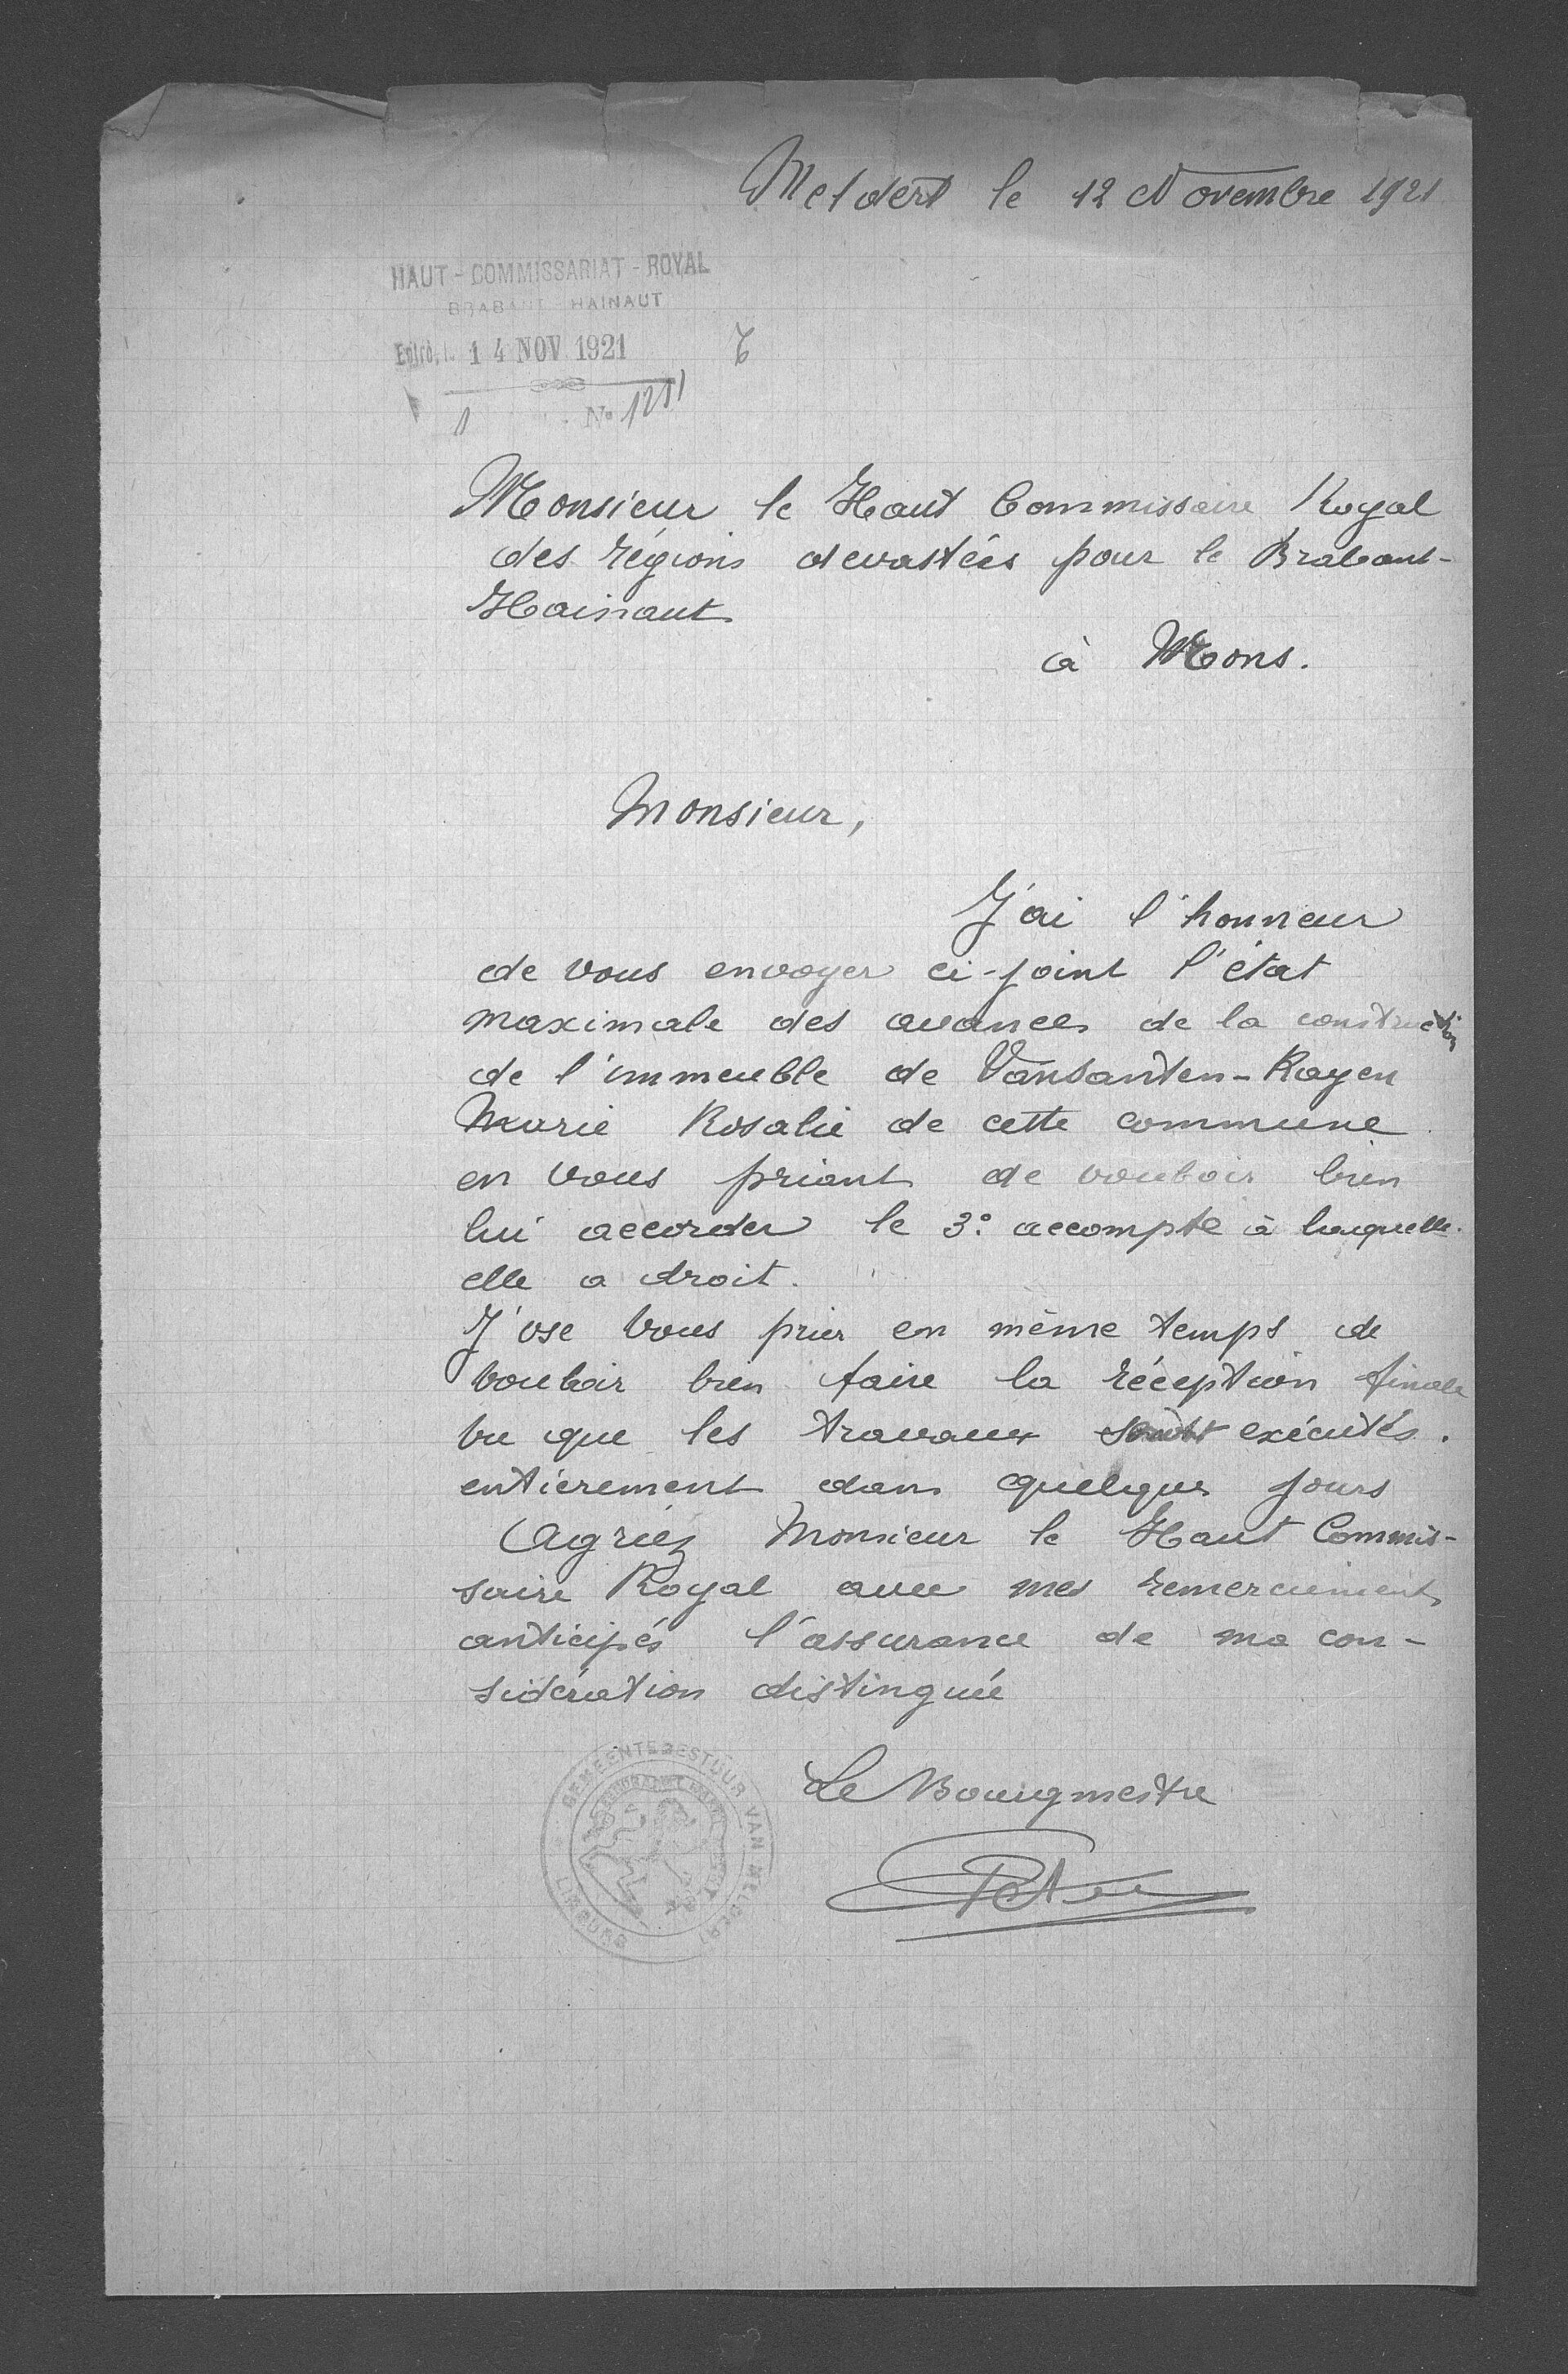 Meldert le 12 Novembre 1921
HAUT-COMMISSARIAT-ROYAL
BRABANT HAINAUT
Entré, le 14 NOV 1921
No 1211
Monsieur le Haut Commissaire Royal
des régions devastées pour le Brabant-
Hainaut
à Mons.
Monsieur,
J'ai l'honneur
de vous envoyer ci-joint l'état
maximale des avances de la construction
de l'immeuble de Vansanten-Royen
Marie Rosalie de cette commune
en vous priant de vouloir bien
lui accorder le 3° accompte à laquelle
elle a droit.
J'ose vous prier en même temps de
vouloir bien faire la réception finale
vu que les travaux exécutés.
entièrement dans quelques jours
Agriéz Monsieur le Haut Commis-
saire Royal avec mes remerciements
anticipés l'assurance de ma con-
sidération distinguée
Le Bourgmestre
GEMEENTEBESTUUR VAN MELDERT
LIMBURG